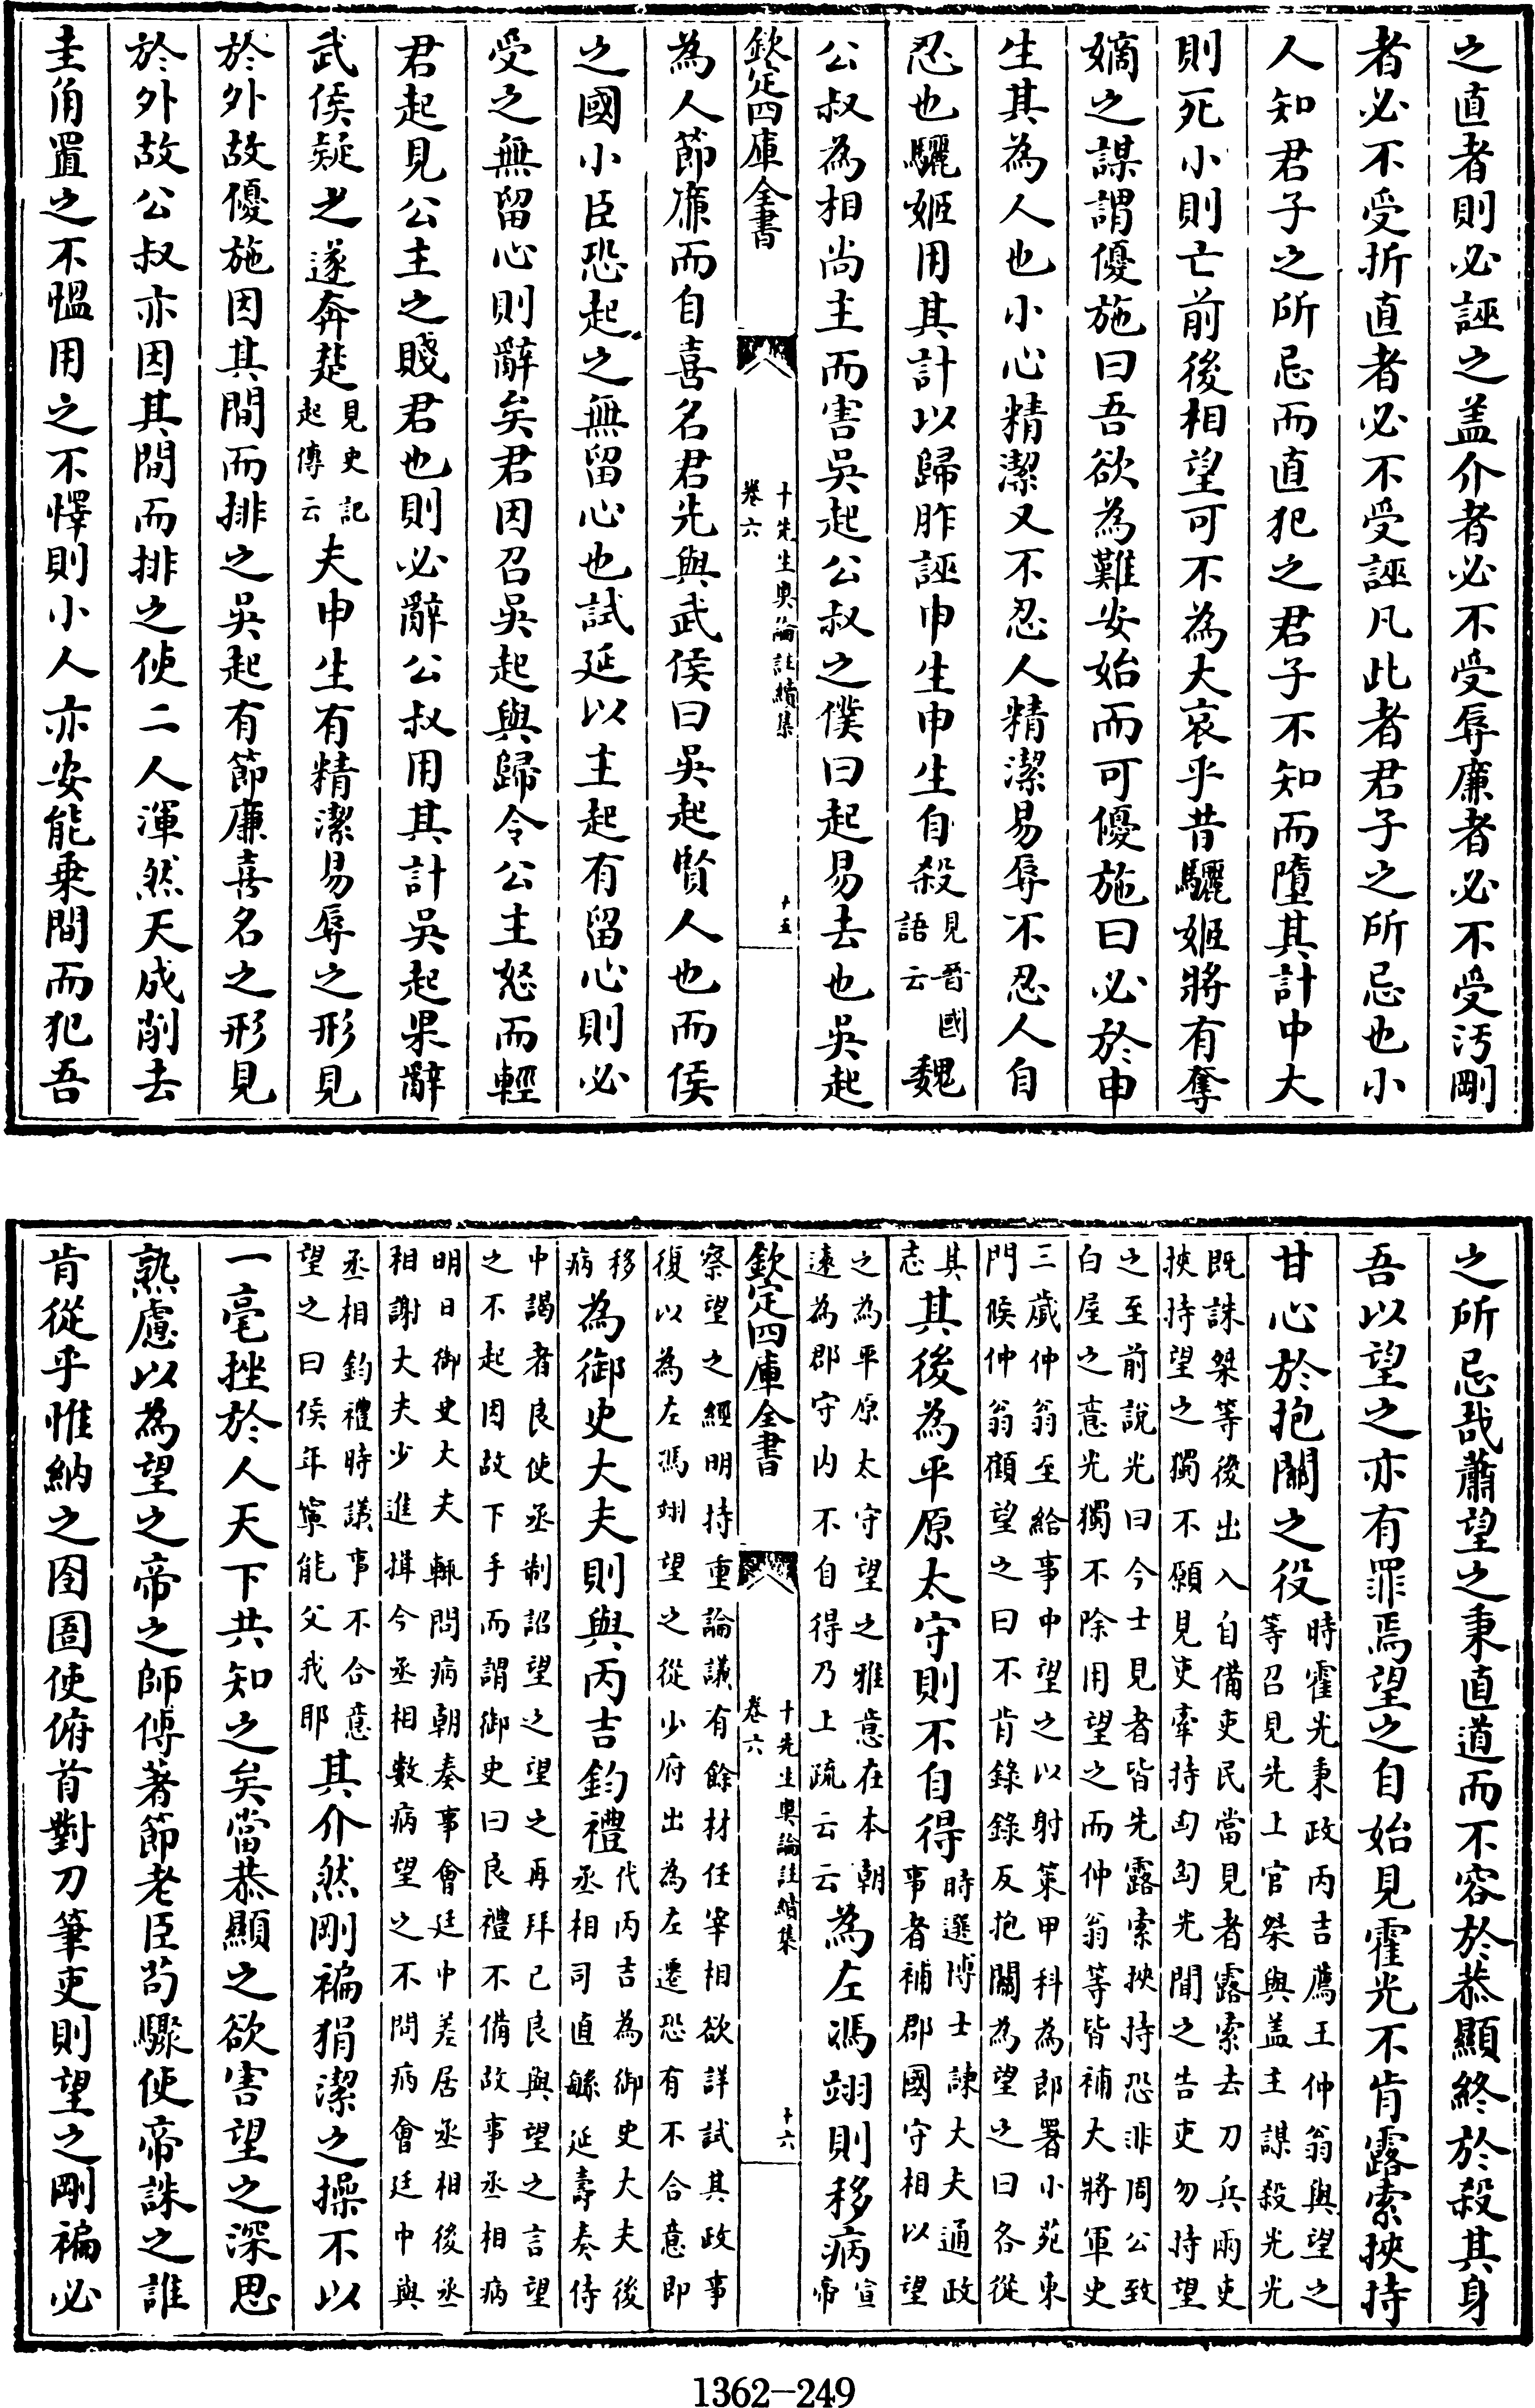 之直者則必誣之盖介者必不受辱廉者必不受汚剛
者必不受折直者必不受誣凡此者君子之所忌也小
人知君子之所忌而直犯之君子不知而墮其計中大
則死小則亡前後相望可不為大哀乎昔驪姬將有奪
嫡之謀謂優施曰吾欲為難安始而可優施曰必於申
生其為人也小心精潔又不忍人精潔易辱不忍人自
忍也驪姬用其計以歸胙誣申生申生自殺見晉國語云魏
公叔為相尚主而害吳起公叔之僕曰起易去也吳起
欽定四庫全書
十先生奧論註續集
卷六
十五
為人節廉而自喜名君先與武侯曰吳起賢人也而侯
之國小臣恐起之無留心也試延以主起有留心則必
受之無留心則辭矣君因召吳起與歸令公主怒而輕
君起見公主之賤君也則必辭公叔用其計吳起果辭
武侯疑之遂奔楚見史記起傳云夫申生有精潔易辱之形見
於外故優施因其間而排之吳起有節廉喜名之形見
於外故公叔亦因其間而排之使二人渾然天成削去
圭角置之不愠用之不懌則小人亦安能乗間而犯吾
之所忌哉蕭望之秉直道而不容於恭顯終於殺其身
吾以望之亦有罪焉望之自始見霍光不肯露索挾持
甘心於抱關之役時霍光秉政丙吉薦王仲翁與望之等召見先上官桀與盖主謀殺光光
既誅桀等後出入自備吏民當見者露索去刀兵兩吏挾持望之獨不願見吏牽持匈匈光聞之告吏勿持望
之至前說光曰今士見者皆先露索挾持恐非周公致白屋之意光獨不除用望之而仲翁等皆補大將軍史
三歲仲翁至給事中望之以射策甲科為郎署小苑東門候仲翁顧望之曰不肯錄錄反抱關為望之曰各從
其志其後為平原太守則不自得時選博士諫大夫通政事者補郡國守相以望
之為平原太守望之雅意在本朝遠為郡守内不自得乃上疏云云為左馮翊則移病宣帝
欽定四庫全書
十先生奧論註續集
卷六
十六
察望之經明持重論議有餘材任宰相欲詳試其政事復以為左馮翊望之從少府出為左遷恐有不合意即
移病為御史大夫則與丙吉鈞禮代丙吉為御史大夫後丞相司直緐延壽奏侍
中謁者良使丞制詔望之望之再拜已良與望之言望之不起因故下手而謂御史曰良禮不備故事丞相病
明日御史大夫輒問病朝奏事會廷中差居丞相後丞相謝大夫少進揖今丞相數病望之不問病會廷中與
丞相鈞禮時議事不合意望之曰侯年寧能父我耶其介然剛褊狷潔之操不以
一毫挫於人天下共知之矣當恭顯之欲害望之深思
熟慮以為望之帝之師傅著節老臣茍驟使帝誅之誰
肯從乎惟納之囹圄使俯首對刀筆吏則望之剛褊必
1362-249